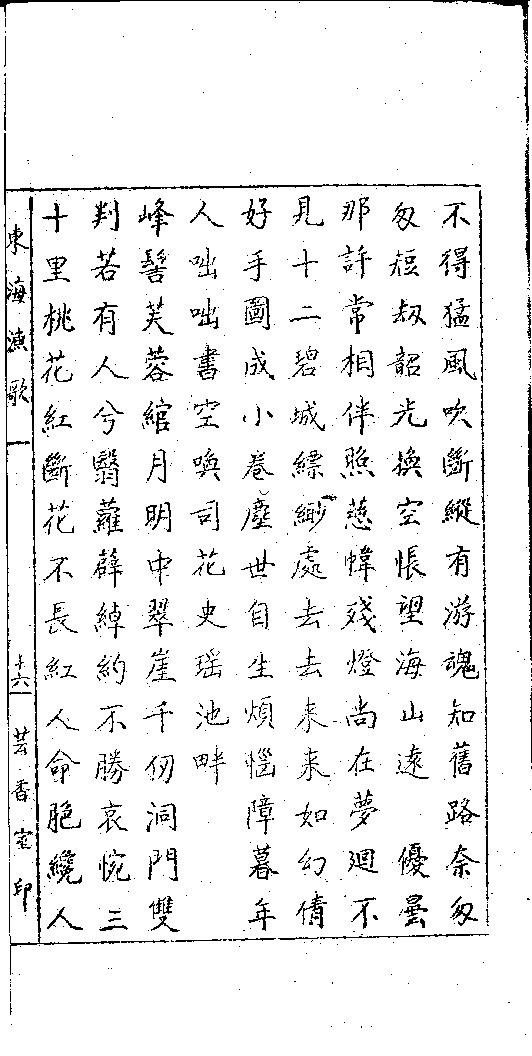 不得猛風吹斷縱有游魂知舊路奈匆
匆短刼韶光換空悵望海山遠　優曇
那許常相伴照慈幃殘燈尚在夢迴不
見十二碧城縹緲處去去来来如幻倩
好手圖成小卷塵世自生煩惱障暮年
人咄咄書空喚司花史瑶池畔
峰髻芙蓉綰月明中翠崖千仞洞門雙
判若有人兮翳蘿薜綽約不勝哀惋三
十里桃花紅斷花不長紅人命脆纔人
東海漁歌
十六
芸香室印